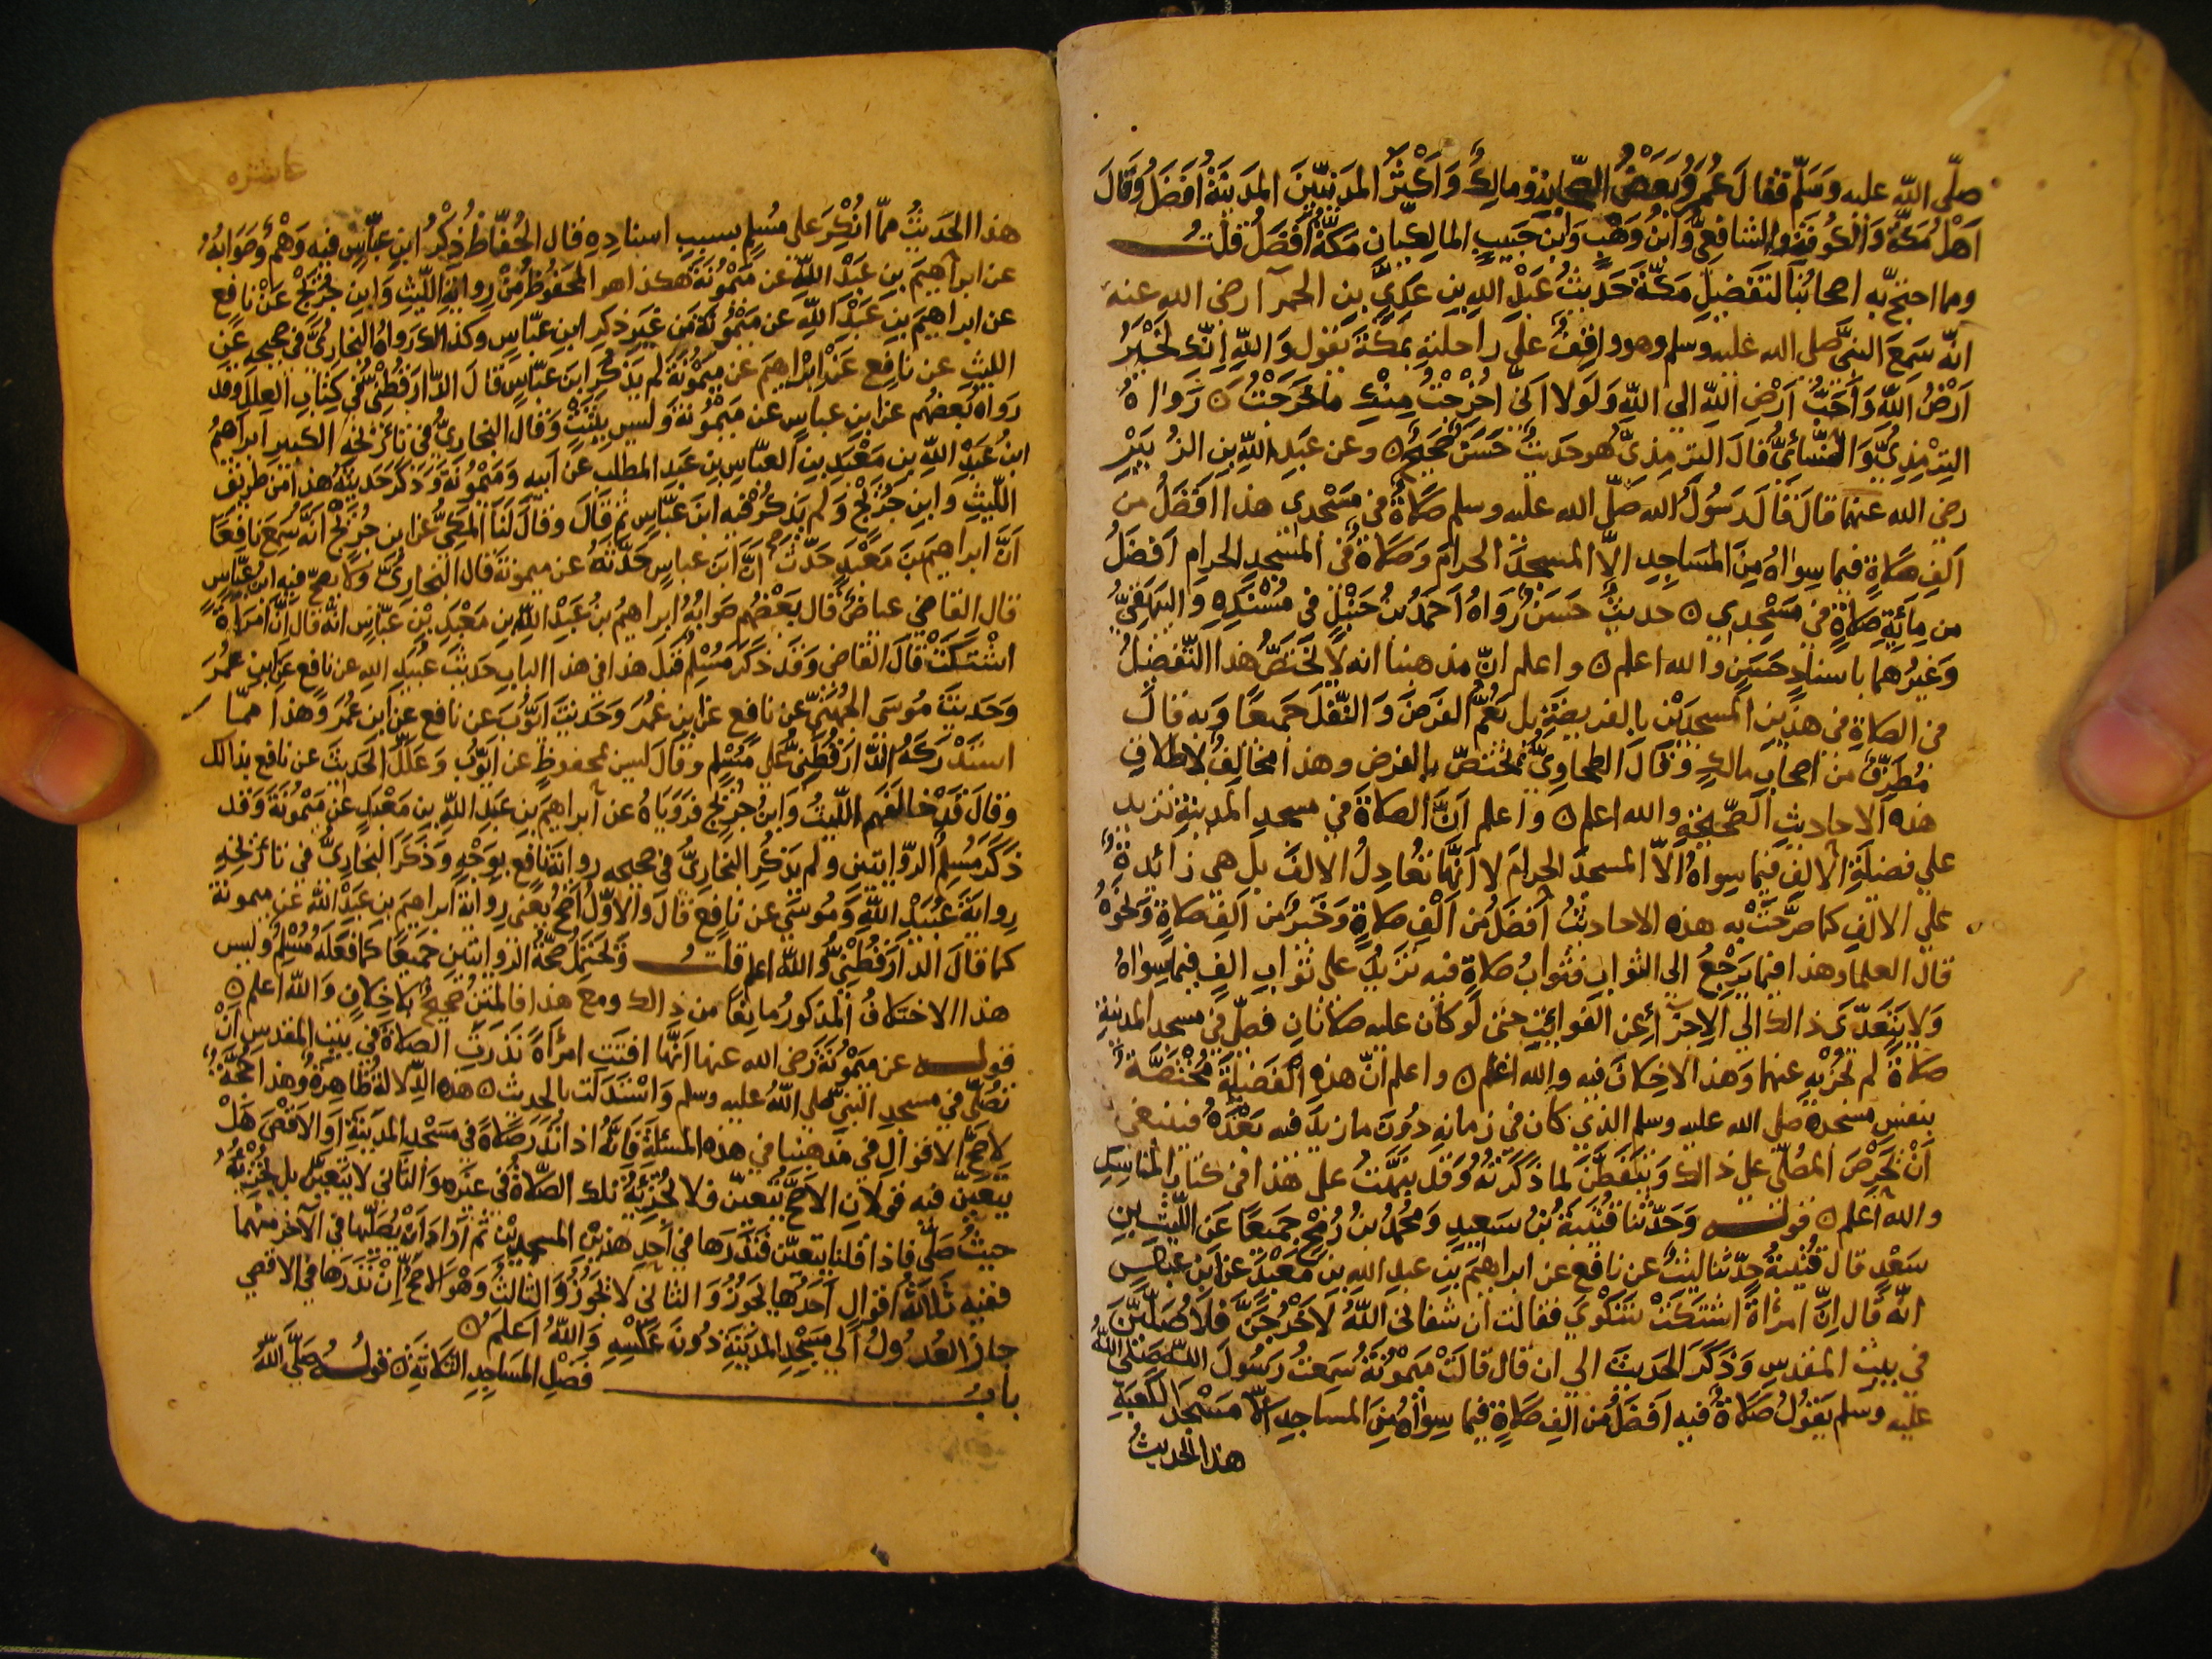 صلّى الله عليه وسلّم فقال عمر وبعض الصحابة ومالك وأكثر المدنيين المدينة أفضل وقال
اهل مكة والكوفة والشافعي وابن وهب وابن حبيب المالكيان مكة أفضل قلت
ومما احتج به اصحابنا لتفضيل مكة حديث عبد الله بن عدي بن الحمرآ رضي الله عنه
انه سمع النبي صلى الله عليه وسلم وهو واقف على راحلته بمكة يقول والله إنك لخير
أرض الله وأحب أرض الله الى الله ولولا اني اخرجت منك ما خرجت ٥ رواه
الترمذي والنسائي قال الترمذي هو حديث حسن صحيح ٥ وعن عبد الله بن الزبير
رضي الله عنهما قال قال رسول الله صلى الله عليه وسلم صلاة في مسجدي هذا أفضل من
ألف صلاة فيما سواه من المساجد إلا المسجد الحرام وصلاة في المسجد الحرام أفضل
من مائة صلاة في مسجدي ٥ حديث حسن رواه أحمد بن حنبل في مسنده والبيهقي
وغيرهما باسناد حسن والله اعلم ٥ واعلم ان مذهبنا انه لا يختص هذا التفضيل
في الصلاة في هذين المسجدين بالفريضة بل يعم الفرض والنفل جميعا وبه قال
مطرف من اصحاب مالك وقال الطحاوي يختص بالفرض وهذا مخالف لاطلاق
هذه الاحاديث الصحيحة والله اعلم ٥ واعلم أن الصلاة في مسجد المدينة تزيد
على فضيلة الالف فيما سواه الا المسجد الحرام لا انها تعادل الالف بل هي زائدة
على الالف كما صرحت به هذه الاحاديث أفضل من ألف صلاة وخير من ألف صلاة ونحوه
قال العلماء وهذا فيما يرجع الى الثواب فثواب صلاة فيه تزيد على ثواب الف فيما سواه
ولا يتعدى ذالك الى الاجزآء عن الفوايت حتى لو كان عليه صلاتان فصلى في مسجد المدينة
صلاة لم تجزيه عنهما وهذا لاخلاف فيه والله اعلم ٥ واعلم ان هذه الفضيلة مختصة
بنفس مسجده صلى الله عليه وسلم الذي كان في زمانه دون ما زيد فيه بعده فينبغي
أن يحرص المصلي على ذالك ويتفطن لما ذكرته وقد نبهت على هذا في كتاب المناسك
والله أعلم ٥ قوله وحدثنا قتيبة بن سعيد ومحمد بن رمح جميعا عن الليث بن
سعد قال قتيبة حدثنا ليث عن نافع عن ابراهيم بن عبد الله بن معبد عن ابن عباس
انه قال ان امرأة اشتكت شكوى فقالت ان شفاني الله لاخرجن فلاصلين
في بيت المقدس وذكر الحديث الى ان قال قالت ميمونة سمعت رسول الله صلى الله
عليه وسلم يقول صلاة فيه أفضل من الف صلاة فيما سواه من المساجد الا مسجد الكعبة
هذا الحديث
عاشره
هذا الحديث مما انكر على مسلم بسبب اسناده قال الحفاظ ذكر ابن عباس فيه وهم وصوابه
عن ابراهيم بن عبد الله عن ميمونة هكذا هو المحفوظ من رواية الليث وابن جريج عن نافع
عن ابراهيم بن عبد الله عن ميمونة من غير ذكر ابن عباس وكذالك رواه البخاري في صحيحه عن
الليث عن نافع عن ابراهيم عن ميمونة لم يذكر ابن عباس قال الدارقطني في كتاب العلل وقد
رواه بعضهم عن ابن عباس عن ميمونة وليس يثبت وقال البخاري في تاريخه الكبير ابراهيم
ابن عبد الله بن معبد بن العباس بن عبد المطلب عن ابيه وميمونة وذكر حديثه هذا من طريق
الليث وابن جريج ولم يذكر فيه ابن عباس ثم قال وقال لنا المكي عن ابن جريج انه سمع نافعا
أن ابراهيم بن معبد حدث ان ابن عباس حدثه عن ميمونة قال البخاري ولا يصح فيه ابن عباس
قال القاضي عياض قال بعضهم صوابه ابراهيم بن عبد الله بن معبد بن عباس انه قال ان امرأة
اشتكت قال القاضي وقد ذكر مسلم قبل هذا في هذا الباب حديث عبيد الله عن نافع عن ابن عمر
وحديث موسى الجهني عن نافع عن ابن عمر وحديث ايوب عن نافع عن ابن عمر وهذا مما
استدركه الدارقطني على مسلم وقال ليس بمحفوظ عن ايوب وعلل الحديث عن نافع بذالك
وقال قد خالفهم الليث وابن جريج فروياه عن ابراهيم بن عبد الله بن معبد عن ميمونة وقد
ذكر مسلم الروايتين ولم يذكر البخاري في صحيحه رواية نافع بوجه وذكر البخاري في تاريخه
رواية عبيد الله وموسى عن نافع قال والاول اصح يعني رواية ابراهيم بن عبد الله عن ميمونة
كما قال الدارقطني والله اعلم قلت ويحتمل صحة الروايتين جميعا كما فعله مسلم وليس
هذا الاختلاف المذكور مانعا من ذالك ومع هذا فالمتن صحيح بلا خلاف والله اعلم ٥
قوله عن ميمونة رضي الله عنها انها افتت امرأة نذرت الصلاة في بيت المقدس أن
تصلي في مسجد النبي صلى الله عليه وسلم واستدلت بالحديث ٥ هذه الدلالة ظاهرة وهذا حجة
لاصح الاقوال في مذهبنا في هذه المسئلة فانه اذا نذر صلاة في مسجد المدينة أو الاقصى هل
يتعين فيه قولان الاصح يتعين فلا تجزئه تلك الصلاة في غيره والثاني لا يتعين بل تجزئه
حيث صلى فاذا قلنا يتعين فنذرها في أحد هذين المسجدين ثم اراد أن يصليها في الآخر منهما
ففيه ثلاثة اقوال أحدها يجوز والثاني لا يجوز والثالث وهو الاصح إن نذرها في الاقصى
جاز العدول الى مسجد المدينة دون عكسه والله اعلم ٥
باب فضل المساجد الثلاثة ٥ قوله صلى الله